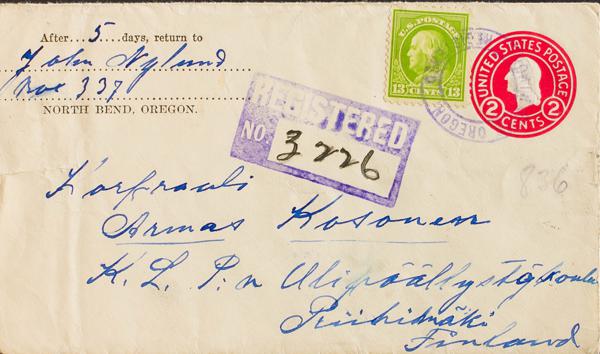 After....5....days, return to
John Nylund
Box 337
NORTH BEND, OREGON.
U.S. POSTAGE
13 CENTS 13
OREGON
UNITED STATES POSTAGE
2 CENTS 2
REGISTERED
NO. 3226
836
Korpraali
Armas Kosonen
K. L. P:n Alipäällystökoulu
Riihimäki
Finland